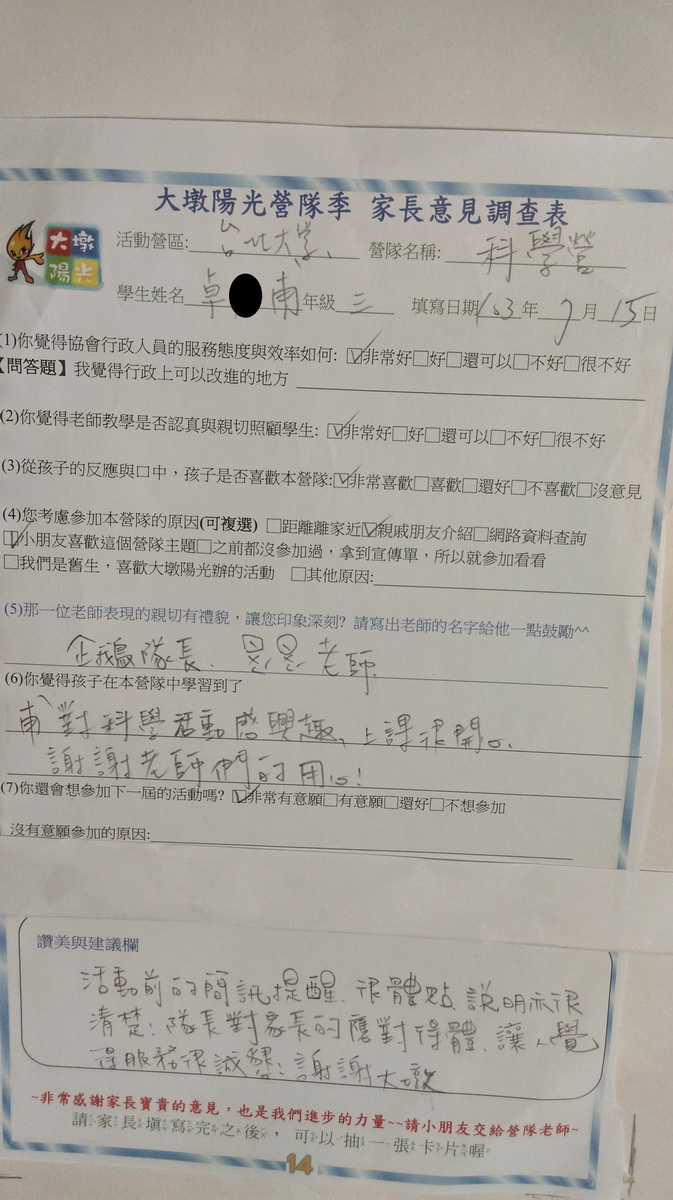 大墩陽光營隊季 家長意見調查表
大墩
陽光
活動營區:台北大學、 營隊名稱:科學營
學生姓名 卓 甫 年級 三 填寫日期 103 年 7 月 15 日
(1)你覺得協會行政人員的服務態度與效率如何: ☑非常好□好□還可以□不好□很不好
【問答題】我覺得行政上可以改進的地方
(2)你覺得老師教學是否認真與親切照顧學生: ☑非常好□好□還可以□不好□很不好
(3)從孩子的反應與口中，孩子是否喜歡本營隊:☑非常喜歡□喜歡□還好□不喜歡□沒意見
(4)您考慮參加本營隊的原因(可複選) □距離離家近☑親戚朋友介紹□網路資料查詢
☑小朋友喜歡這個營隊主題□之前都沒參加過，拿到宣傳單，所以就參加看看
□我們是舊生，喜歡大墩陽光辦的活動 □其他原因:
(5)那一位老師表現的親切有禮貌，讓您印象深刻? 請寫出老師的名字給他一點鼓勵^^
企鵝隊長、 老師
(6)你覺得孩子在本營隊中學習到了
甫對科學活動感興趣、上課很開心、
謝謝老師們的用心!
(7)你還會想參加下一屆的活動嗎? ☑非常有意願□有意願□還好□不想參加
沒有意願參加的原因:
讚美與建議欄
活動前的簡訊提醒、很體貼、說明亦很
清楚!隊長對家長的應對得體、讓人覺
得服務很誠懇!謝謝大墩
~非常感謝家長寶貴的意見，也是我們進步的力量~~請小朋友交給營隊老師~
請家長填寫完之後，可以抽一張卡片喔
14